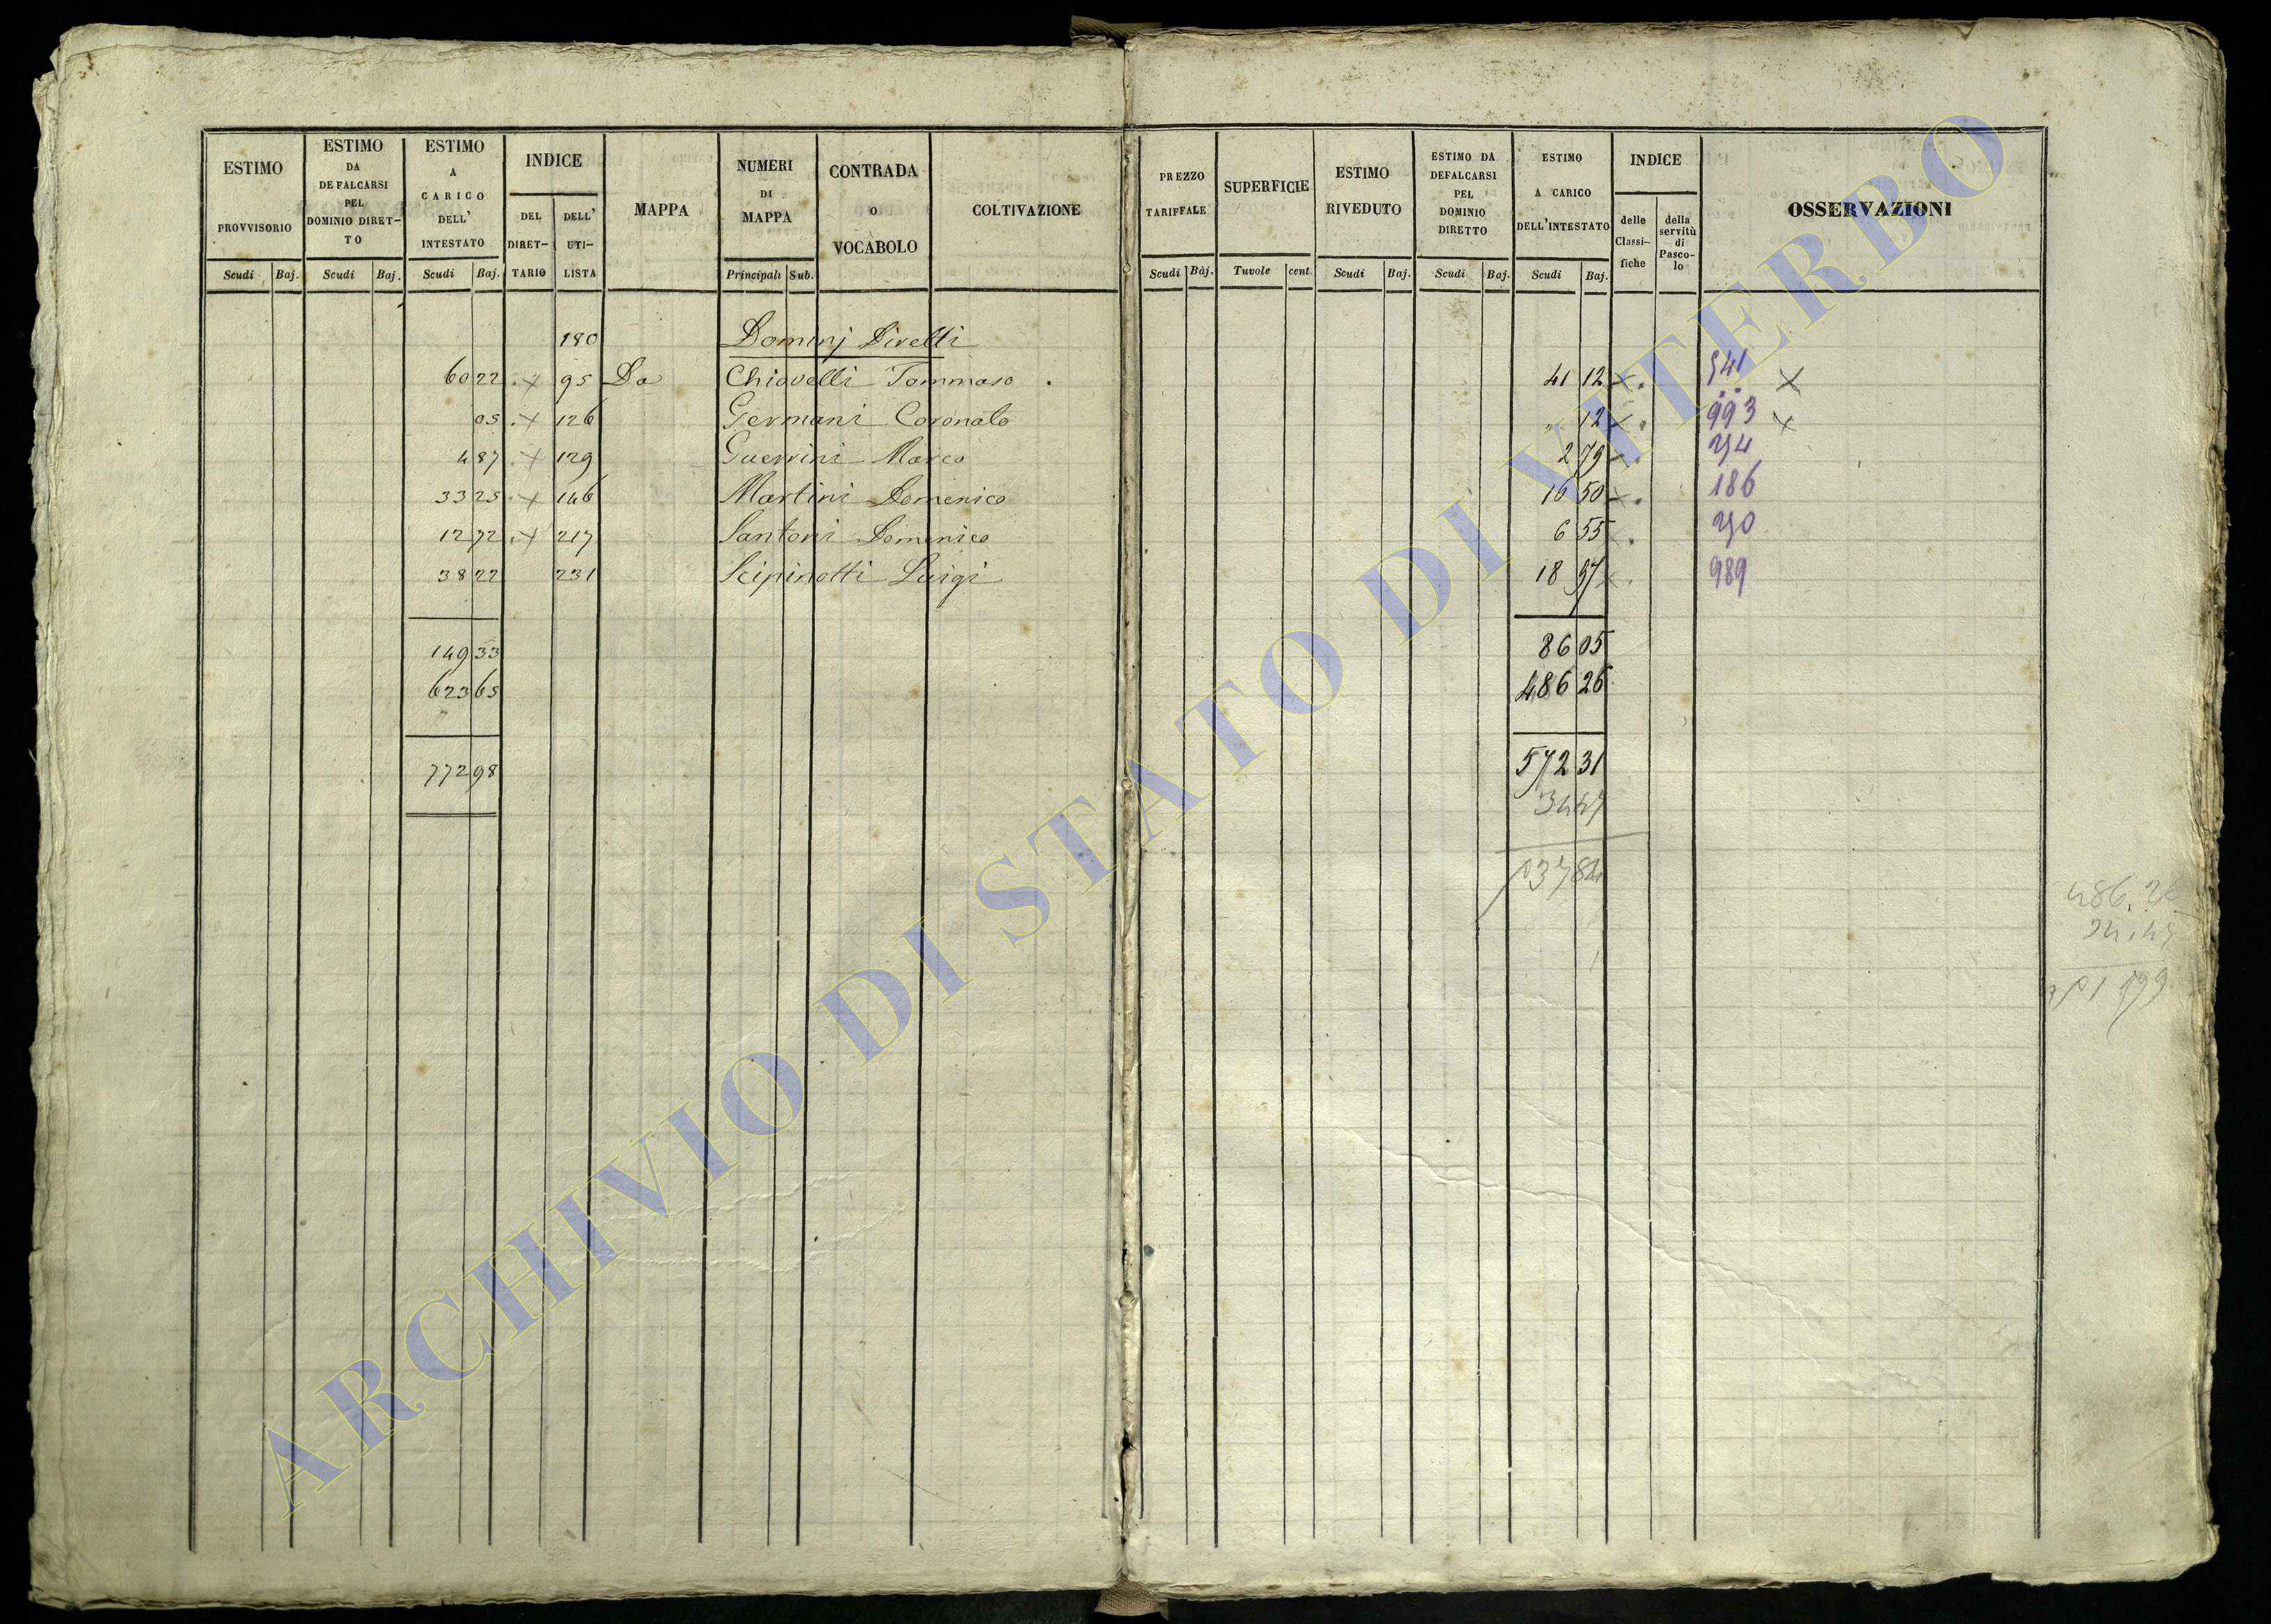 ESTIMO PROVVISORIO Scudi Baj.
ESTIMO DA DEFALCARSI PEL DOMINIO DIRET-TO Scudi Baj.
ESTIMO A CARICO DELL' INTESTATO Scudi Baj.
INDICE DEL DIRET-TARIO DELL' UTI-LISTA
MAPPA
NUMERI DI MAPPA Principali Sub.
CONTRADA O VOCABOLO
COLTIVAZIONE
PREZZO TARIFFALE Scudi Baj.
SUPERFICIE Tavole cent.
ESTIMO RIVEDUTO Scudi Baj.
ESTIMO DA DEFALCARSI PEL DOMINIO DIRETTO Scudi Baj.
ESTIMO A CARICO DELL'INTESTATO Scudi Baj.
INDICE delle Classi-fiche della servitù di Pasco-lo
OSSERVAZIONI
180 Dominj Diretti
60 22 x 95 Da Chiovelli Tommaso 41 12 x 541 x
05 x 126 Germani Coronato " 12 x 993 x
4 87 x 129 Guerrini Marco 2 79 x 74
33 25 x 146 Martini Domenico 16 50 x 186
12 72 x 217 Santoni Domenico 6 55 x 70
38 22 231 Scipinotti Luigi 18 97 x 989
149 33 86 05
623 65 486 26
772 98 572 31
34 47
537 84
486.26
24.47
ARCHIVIO DI STATO DI VITERBO